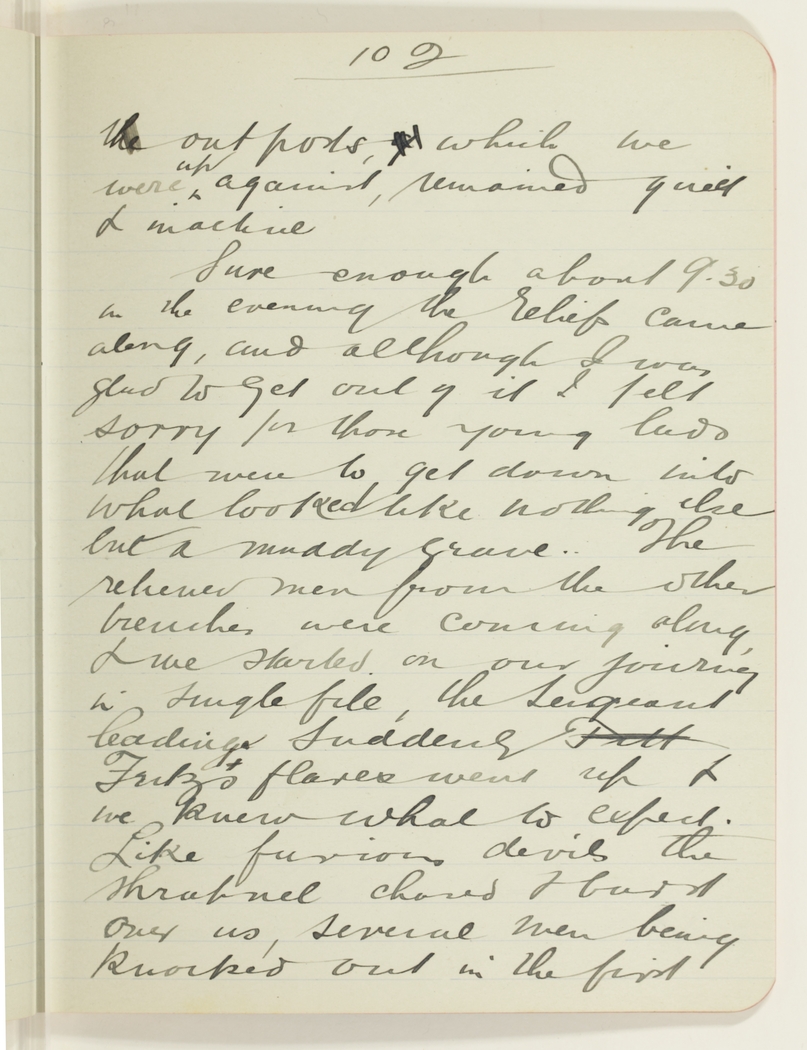 102
the outposts, which we
were up against, remained quiet
& inactive
Sure enough about 9.30
in the evening the relief came
along, and although I was
glad to get out of it I felt
sorry for those young lads
that were to get down into
what looked like nothing else
but a muddy grave.. The
relieved men from the other
trenches were coming along,
& we started on our journey
in single file, the Sergeant
leading. Suddenly
Fritz's flares went up &
we knew what to expect.
Like furious devils the
shrapnel chased & burst
over us, several men being
knocked out in the first